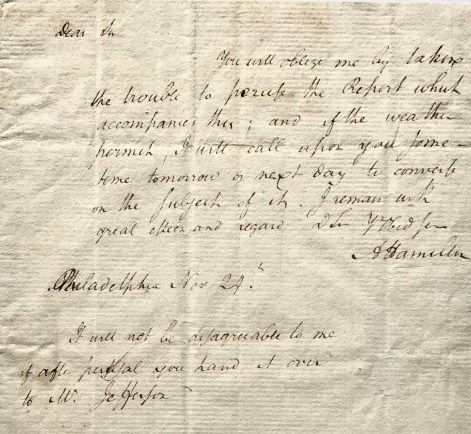 Dear Sir
You will oblige me by taking
the trouble to peruse the Report which
accompanies this; and if the weather
permit, I will call upon you some-
time tomorrow or next day to converse
on the subject of it. I remain with
great esteem and regard D Sir Yr Obed ser
A Hamilton
Philadelphia Nov 24.th
It will not be disagreeable to me
if after perusal you hand it over
to Mr. Jefferson